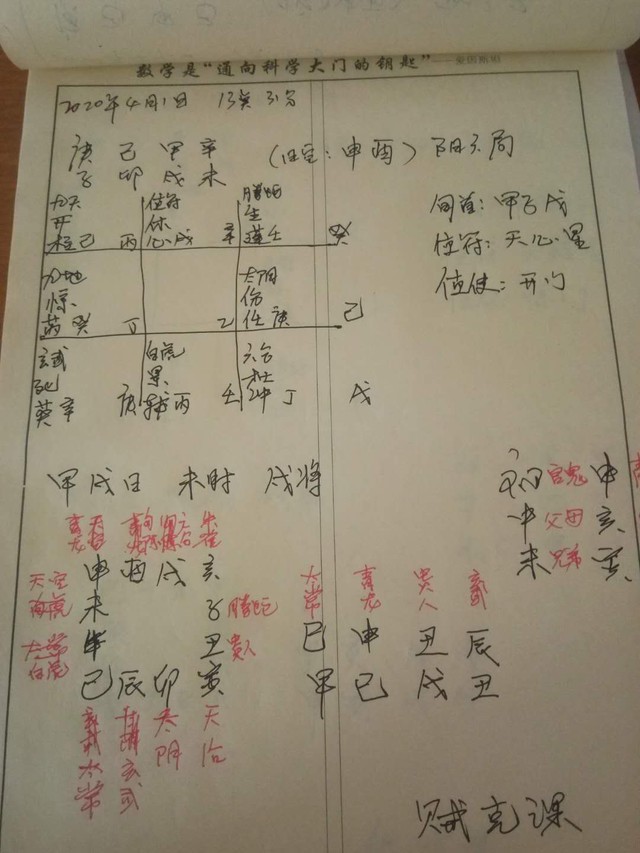 数学是“通向科学大门的钥匙”——爱因斯坦
2020年4月1日 13点31分
庚 己 甲 辛 (旬空:申酉) 阳六局
子 卯 戌 未
九天 值符 螣蛇
开 休 生
柱己 丙 心戊 辛 蓬壬 癸
旬首:甲子戊
值符:天心星
值使:开门
九地 太阴
惊 伤
芮癸 丁 乙 任庚 己
玄武 白虎 六合
死 景 杜
英辛 庚 辅丙 壬 冲丁 戊
甲戌日 未时 戌将
官鬼 申
申 父母 亥
未 兄弟 寅
青龙
申酉戌亥
天空 未 子 螣蛇
白虎
太常 午 丑 贵人
白虎
巳辰卯寅
太常 青龙 贵人 玄武
巳 申 丑 辰
甲 巳 戌 丑
玄武 太阴 天后
太常 玄武
贼克课